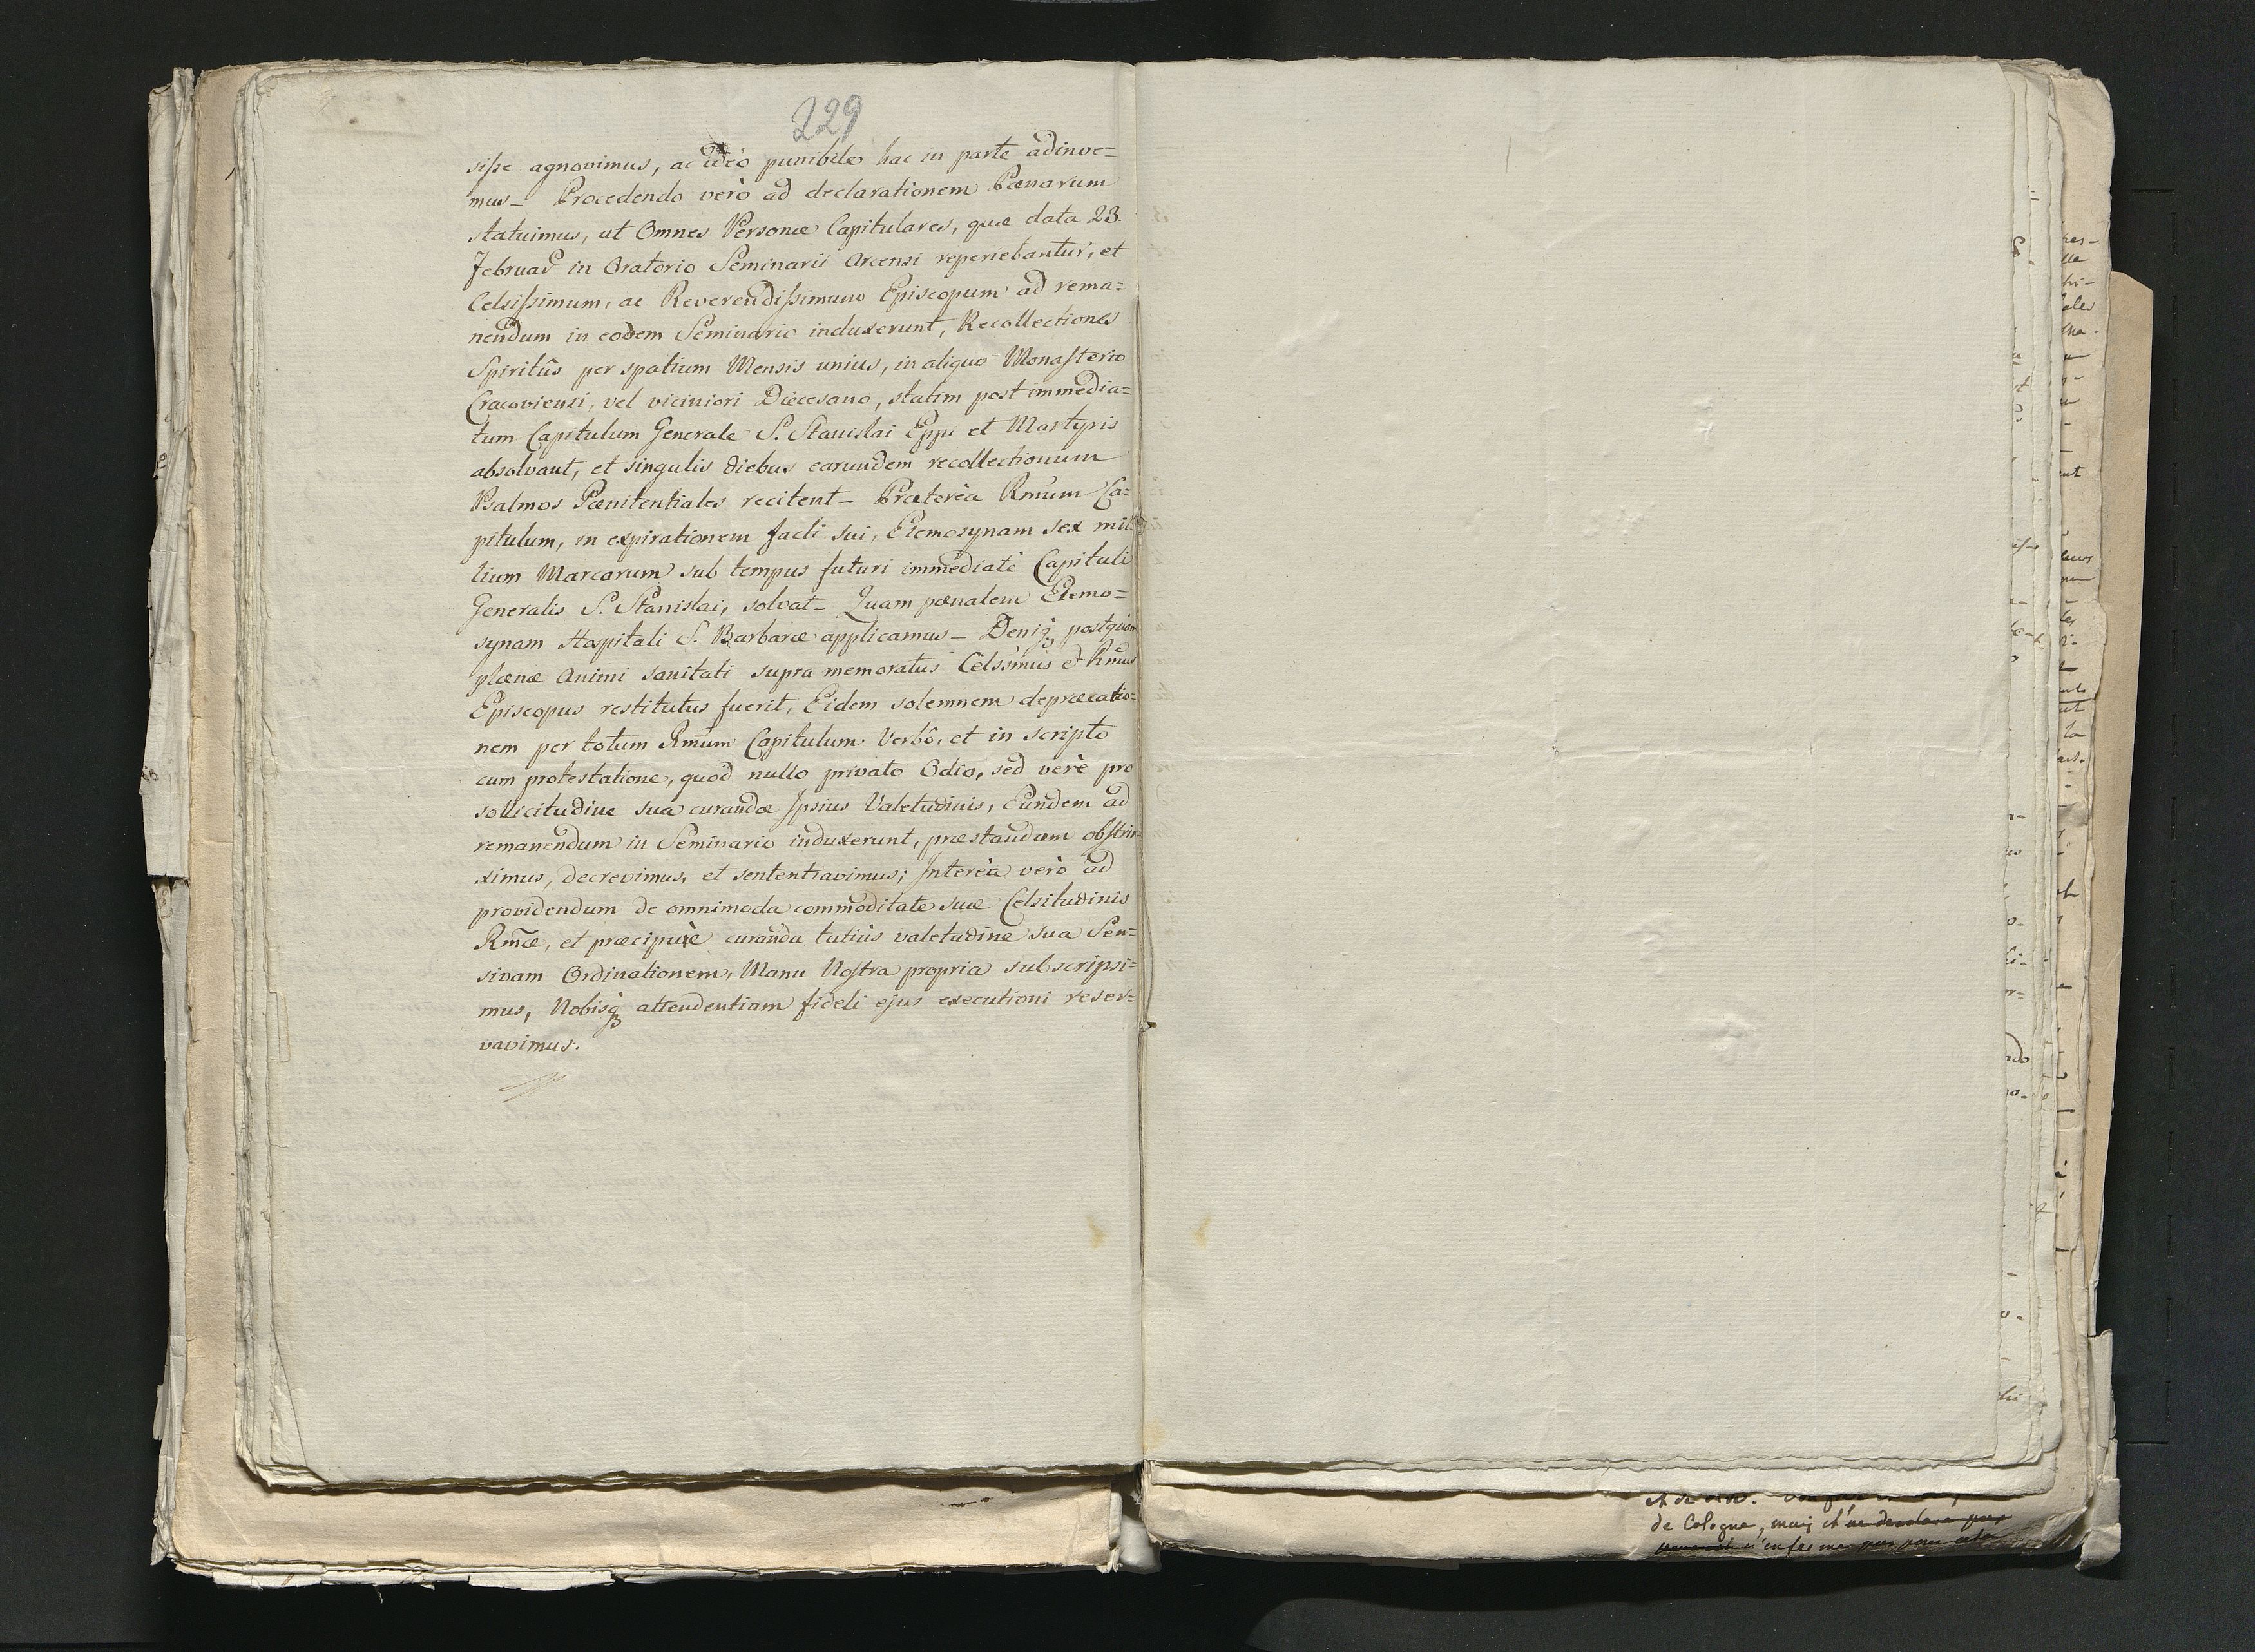 229
sisse agnovimus, ac ideò punibile hac in parte adinve=
mus – Procedendo verò ad declarationem Pœnarum
statuimus, ut Omnes Personæ Capitulares, quæ data 23.
Februar in Oratorio Seminarii Arcensi reperiebantur, et
Celsissimum, ac Reverendissimum Episcopum ad rema=
nendum in eodem Seminario induxerunt, Recollectiones
Spiritûs per spatium Mensis unius, in aliquo Monasterio
Cracoviensi, vel viciniori Diœcesano, statim post immedia=
tum Capitulum Generale S. Stanislai Eppi et Martyris
absolvant, et singulis diebus earundem recollectionum
Psalmos Pœnitentiales recitent – Prætereà Rmum Ca=
pitulum, in expirationem facti sui, Elemosynam sex mil
lium Marcarum sub tempus futuri immediatè Capituli
Generalis S. Stanislai, solvat – Quam pœnalem Elemo=
synam Hospitali S. Barbaræ applicamus – Deniq postquam
plænæ Animi sanitati supra memoratus Celssmus et Rmus
Episcopus restitutus fuerit, Eidem solemnem depræcatio=
nem per totum Rmum Capitulum Verbô, et in scripto
cum protestatione, quod nullo privato Odio, sed verè pro
sollicitudine sua curandæ Ipsius Valetudinis, Eundem ad
remanendum in Seminario induxerunt, præstandam obstrin
ximus, decrevimus, et sententiavimus; Intereà verò ad
providendum de omnimoda commoditate suæ Celsitudinis
Rmæ, et præcipuè curanda tutius valetudine sua Sen=
sivam Ordinationem, Manu Nostra propria subscripsi=
mus, Nobisq attendentiam fideli ejus executioni reser=
vavimus.
de Cologne, mais